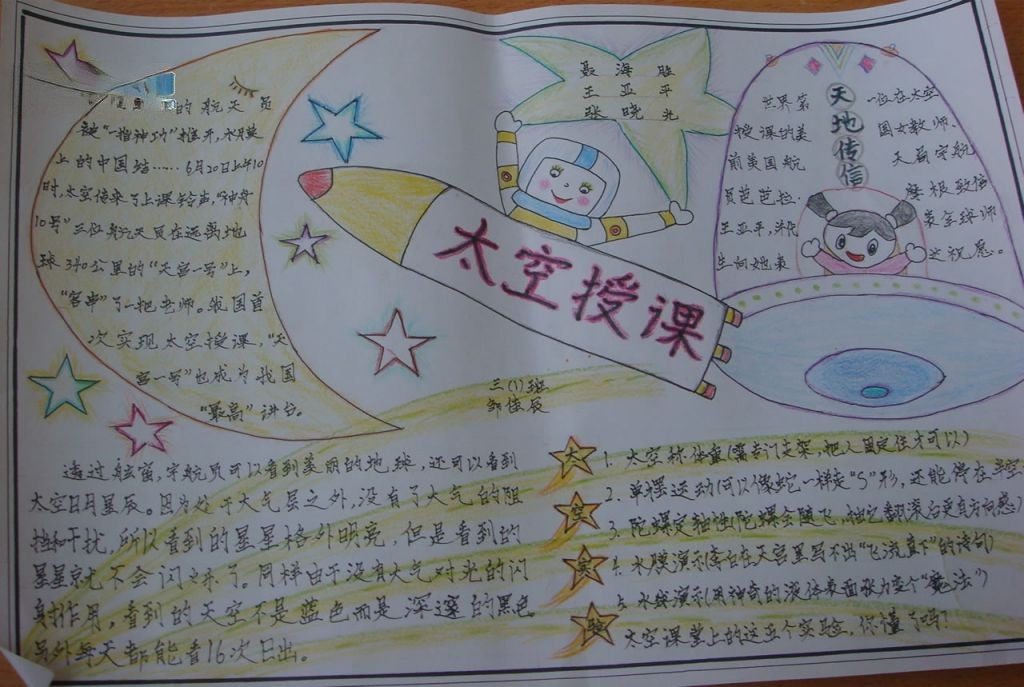 的航天员
被“一指神功”推开,水膜
上的中国结……6月20日上午10
时,太空传来了上课铃声,“神舟
10号”三位航天员在远离地
球340公里的“天宫一号”上,
“客串”了一把老师。我国首
次实现太空授课,“天
宫一号”也成为我国
“最高”讲台。
聂海胜
王亚平
张晓光
太空授课
三(1)班
邹佳辰
天地传信
世界第一位在太空
授课的美国女教师、
前美国航天局宇航
员芭芭拉
王亚平,
生向她表
之祝愿。
透过舷窗,宇航员可以看到美丽的地球,还可以看到
太空日月星辰。因为处于大气层之外,没有了大气的阻
挡和干扰,所以看到的星星格外明亮,但是看到的
星星就不会闪烁了。同样由于没有大气对光的闪
射作用,看到的天空不是蓝色而是深邃的黑色
另外每天都能看16次日出。
太空实验
1.太空称体重(需专门支架,把人固定住才可以)
2.单摆运动(可以像蛇一样走“S”形,还能停在半空)
3.陀螺定轴性(陀螺会随飞,
4.水膜演示(李白在天宫里写不出“飞流直下”的诗句)
5.水球演示(用神奇的液体表面张力变个“魔法”)
太空课堂上的这五个实验,你懂了吗?